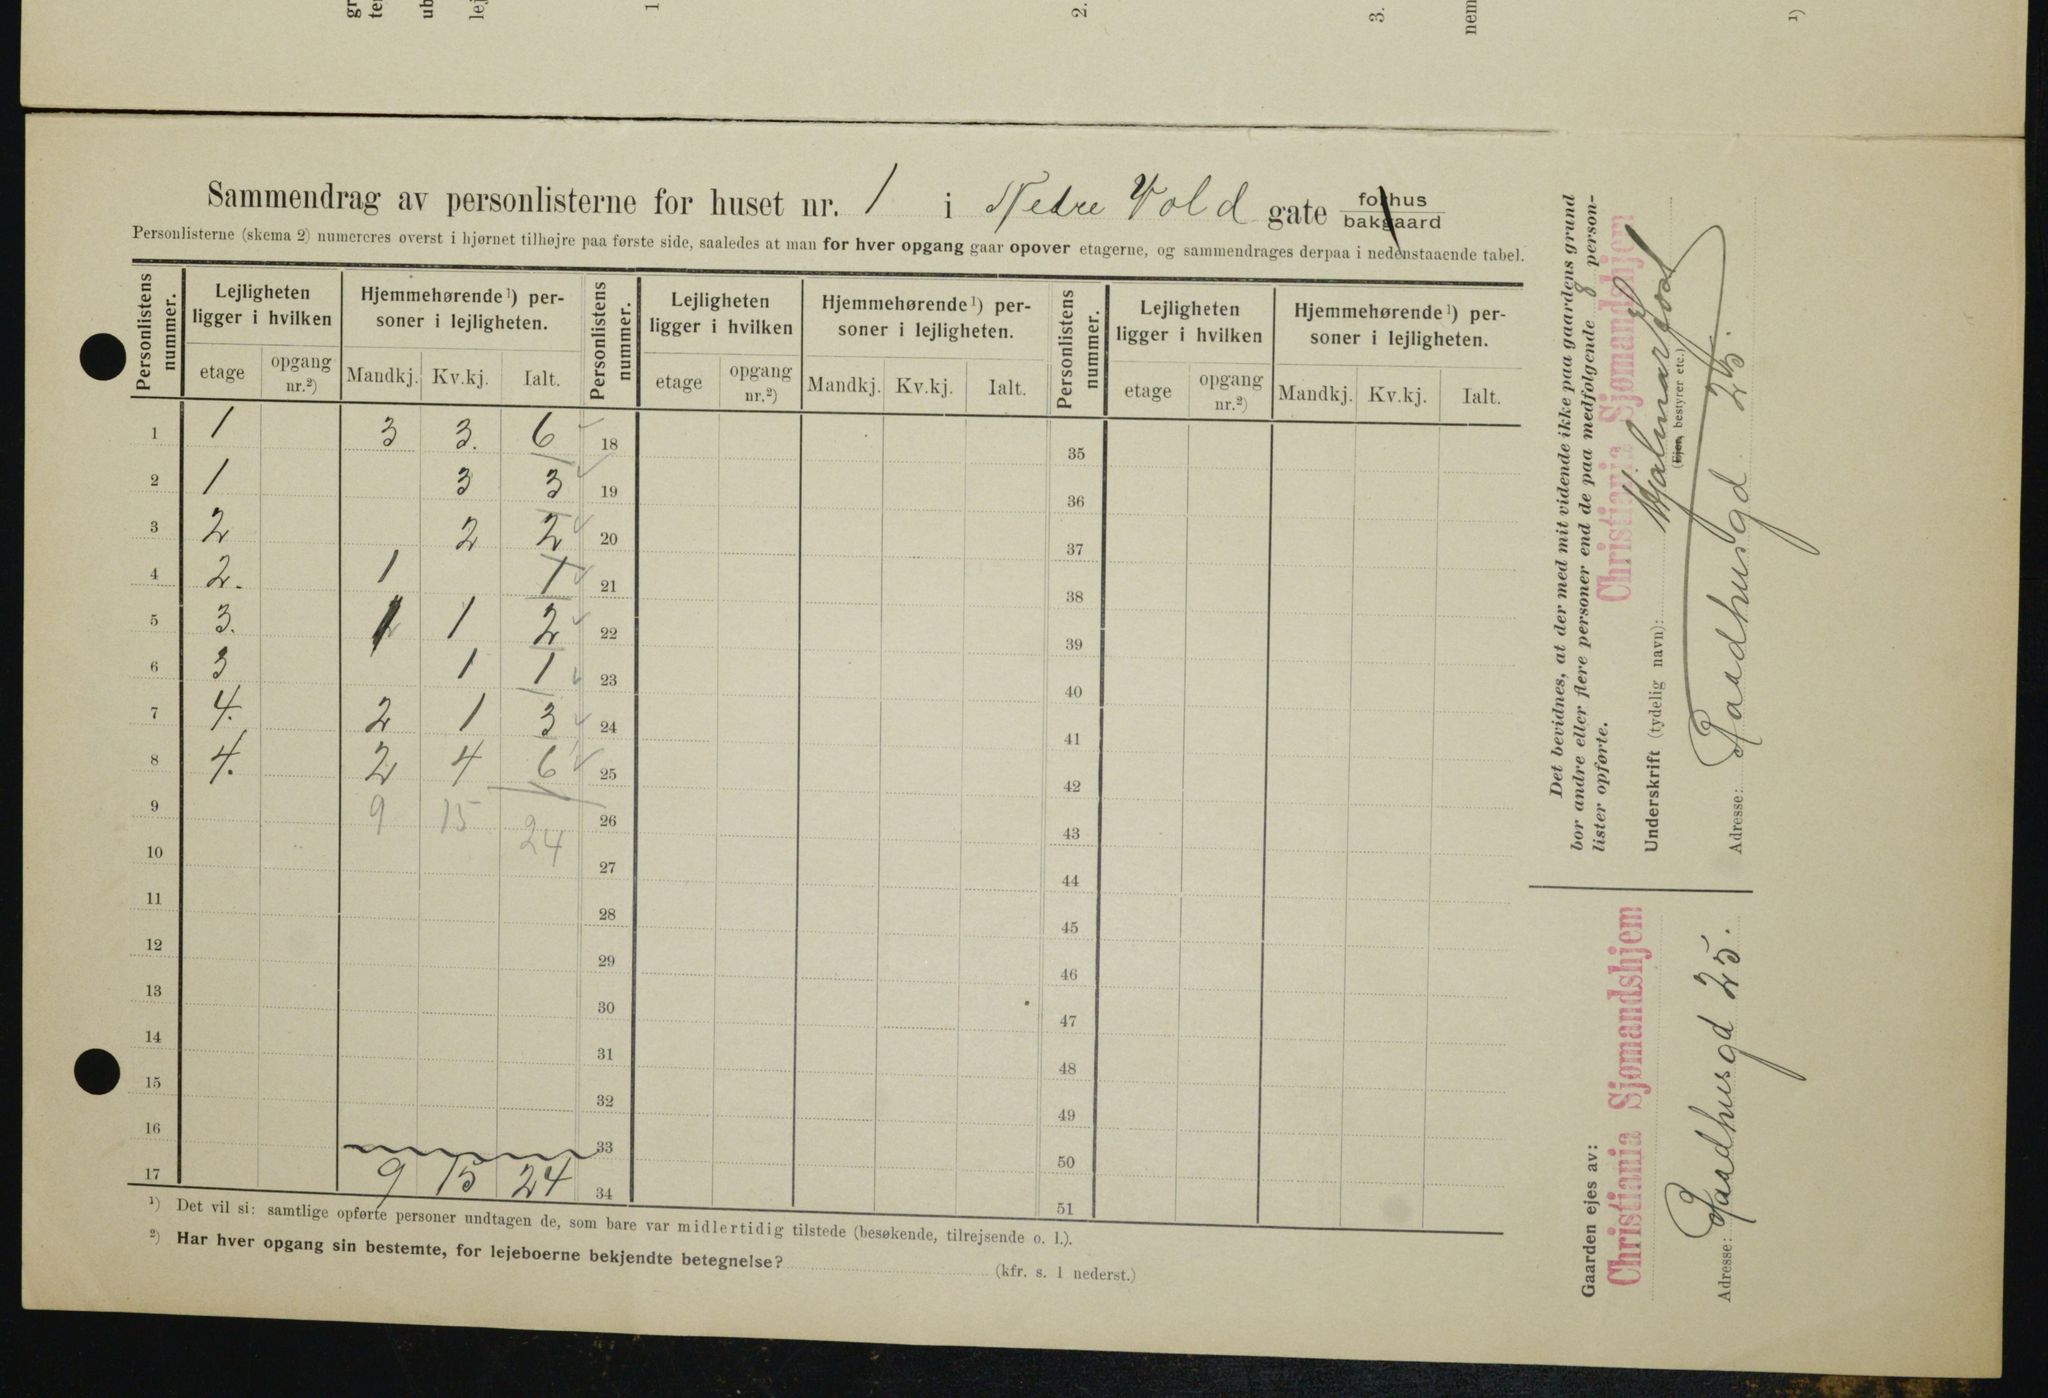 Sammendrag av personlisterne for huset nr. 1 i Nedre Vold gate forhus
bakgaard
Personlisterne (skema 2) numereres øverst i hjørnet tilhøjre paa første side, saaledes at man for hver opgang gaar opover etagerne, og sammendrages derpaa i nedenstaaende tabel.
Personlistens nummer. Lejligheten ligger i hvilken Hjemmehørende¹) personer i lejligheten. Personlistens nummer. Lejligheten ligger i hvilken Hjemmehørende¹) personer i lejligheten. Personlistens nummer. Lejligheten ligger i hvilken Hjemmehørende¹) personer i lejligheten.
etage opgang nr.²) Mandkj. Kv.kj. Ialt. etage opgang nr.²) Mandkj. Kv.kj. Ialt. etage opgang nr.²) Mandkj. Kv.kj. Ialt.
1 1 3 3. 6 18 35
2 1 3 3 19 36
3 2 2 2 20 37
4 2. 1 1 21 38
5 3. 1 1 2 22 39
6 3 1 1 23 40
7 4. 2 1 3 24 41
8 4. 2 4 6 25 42
9 9 15 24 26 43
10 27 44
11 28 45
12 29 46
13 30 47
14 31 48
15 32 49
16 33 50
17 9 15 24 34 51
¹) Det vil si: samtlige opførte personer undtagen de, som bare var midlertidig tilstede (besøkende, tilrejsende o. l.).
²) Har hver opgang sin bestemte, for lejeboerne bekjendte betegnelse? (kfr. s. 1 nederst.)
Det bevidnes, at der med mit vidende ikke paa gaardens grund
bor andre eller flere personer end de paa medfølgende 8 person-
lister opførte.
Christiania Sjømandshjem
Underskrift (tydelig navn): Hjalmar
(Ejer, bestyrer etc.)
Adresse: Raadhusgd 25.
Gaarden ejes av:
Christiania Sjømandshjem
Adresse: Raadhusgd 25.
1
2.
3.
nem
¹)
gr
te
ub
lej